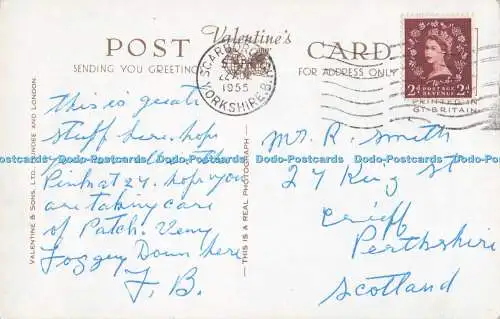 POST Valentine's CARD
SENDING YOU GREETING
FOR ADDRESS ONLY
SCARBOROUGH
1955
YORKSHIRE.B
2d POSTAGE REVENUE 2d
PRINTED IN
GT. BRITAIN
This is great
stuff here. hope
at 24. hope you
are taking care
of Patch. Very
Foggey Down here
F. B.
Mr. R. Smith
24 King St
Crieff
Perthshire
Scotland
VALENTINE & SONS. LTD. DUNDEE AND LONDON.
THIS IS A REAL PHOTOGRAPH
Dodo-Postcards Dodo-Postcards Dodo-Postcards Dodo-Postcards Dodo-Postcards